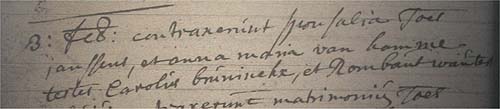 3: feb: contraxerunt sponsalia Joes
janssens, et anna maria van hamme
testes, Carolis brininckx, et Rombaut wauters
contraxerunt matrimoniũ Joes